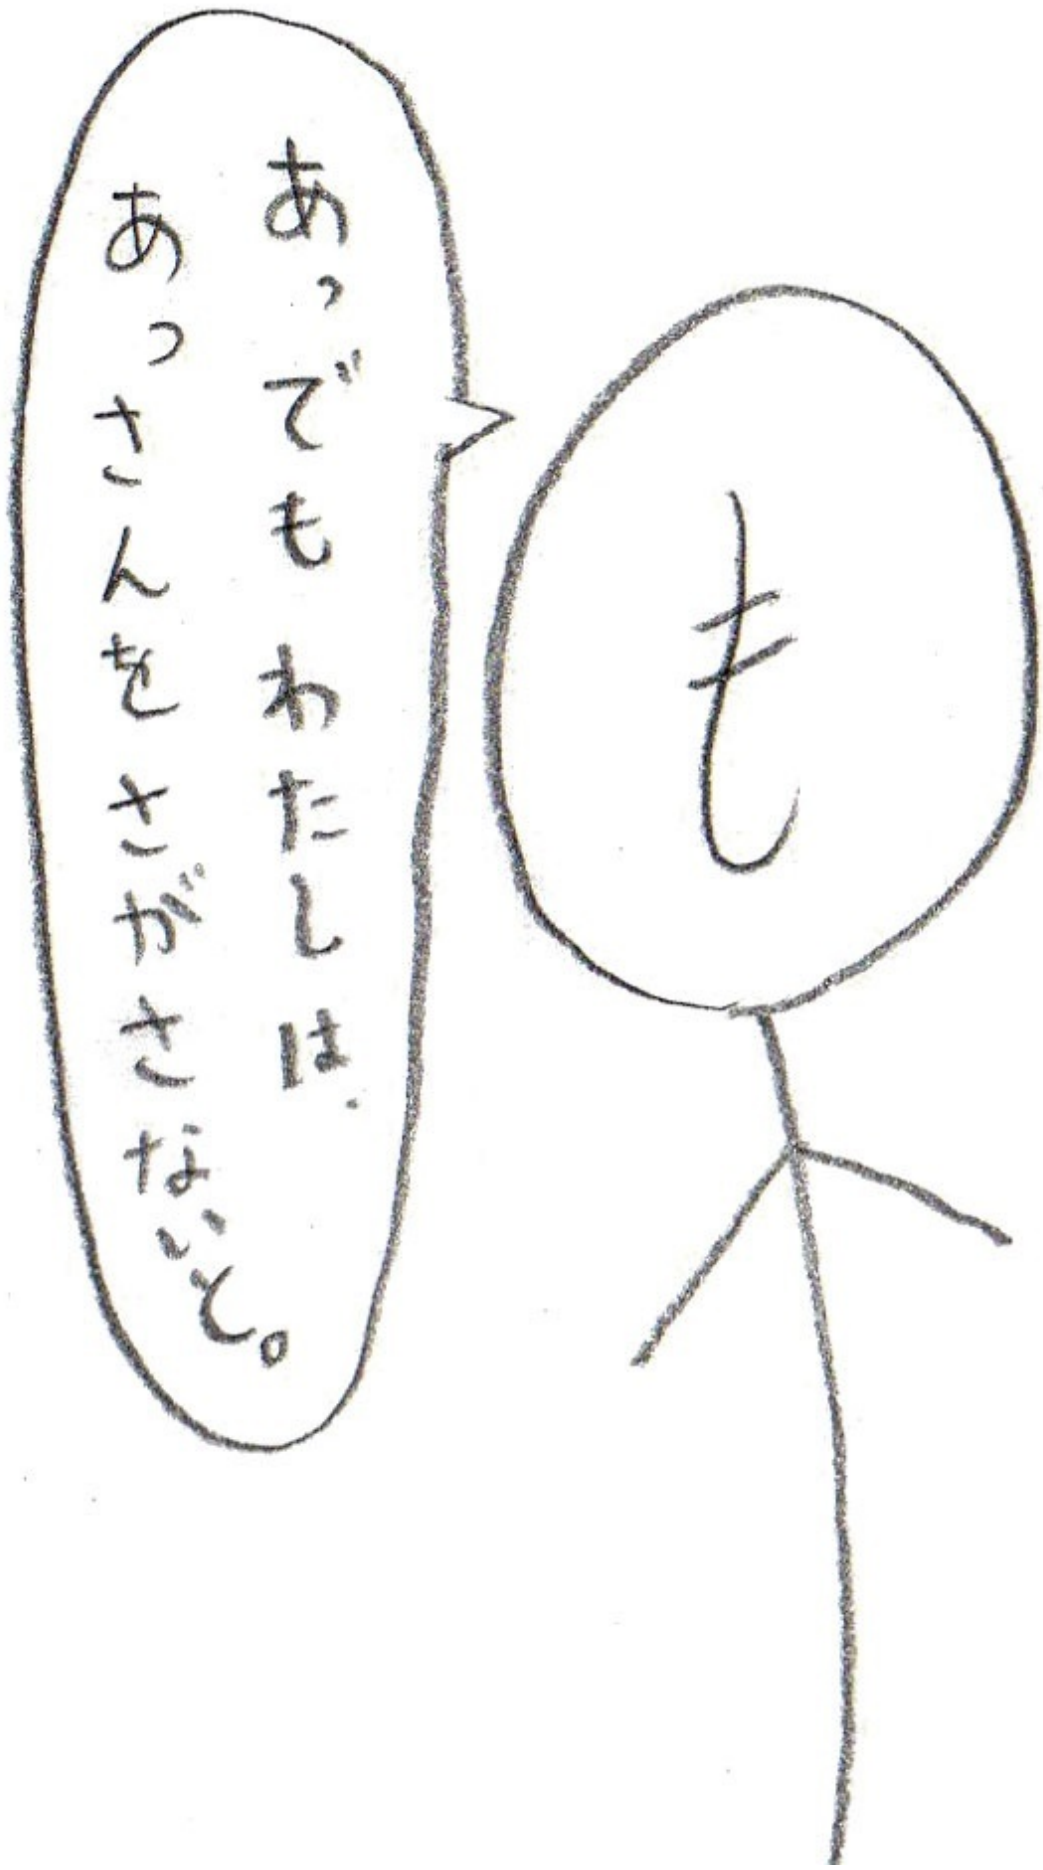 も
あっでもわたしは、
あっさんをさがさないと。